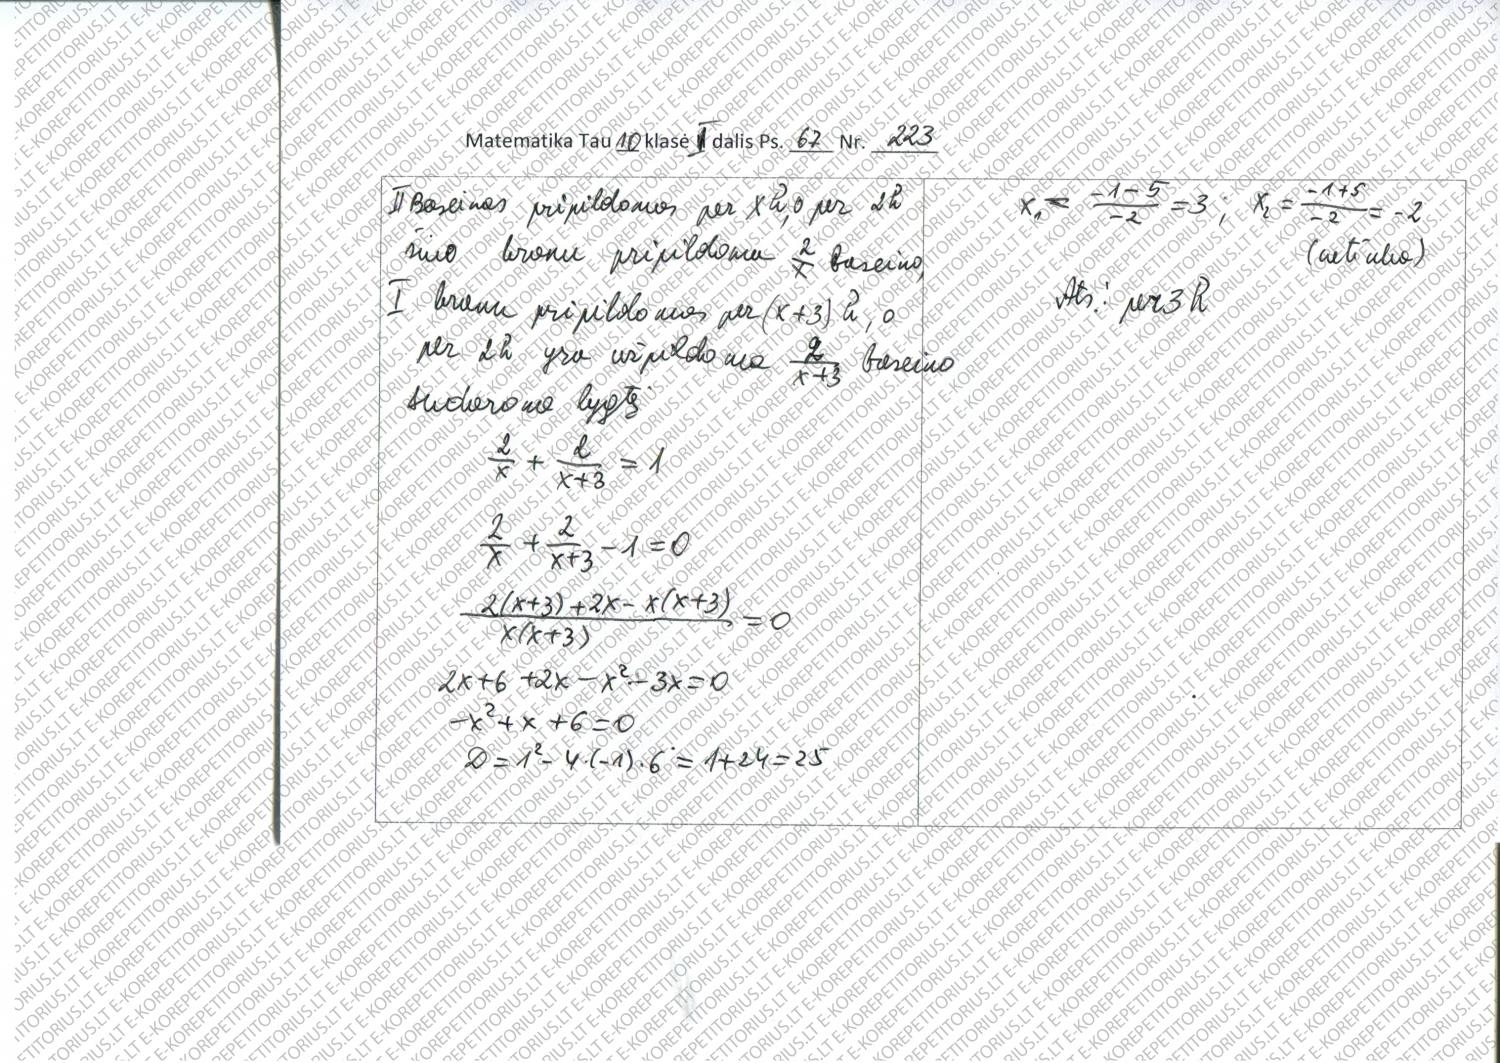 Matematika Tau 10 klasė I dalis Ps. 67 Nr. 223
II Baseinas pripildomas per x h, o per 2h
šiuo kranu pripildoma 2/x baseino,
I kranu pripildomas per (x+3) h, o
per 2h yra užpildoma 2/(x+3) baseino
sudarome lygtį
2/x + 2/(x+3) = 1
2/x + 2/(x+3) - 1 = 0
(2(x+3) + 2x - x(x+3))/(x(x+3)) = 0
2x+6 +2x - x² - 3x = 0
-x² + x + 6 = 0
D = 1² - 4·(-1)·6 = 1+24 = 25
x₁ = (-1-5)/(-2) = 3; x₂ = (-1+5)/(-2) = -2
(netinka)
Ats.: per 3 h
E-KOREPETITORIUS.LT